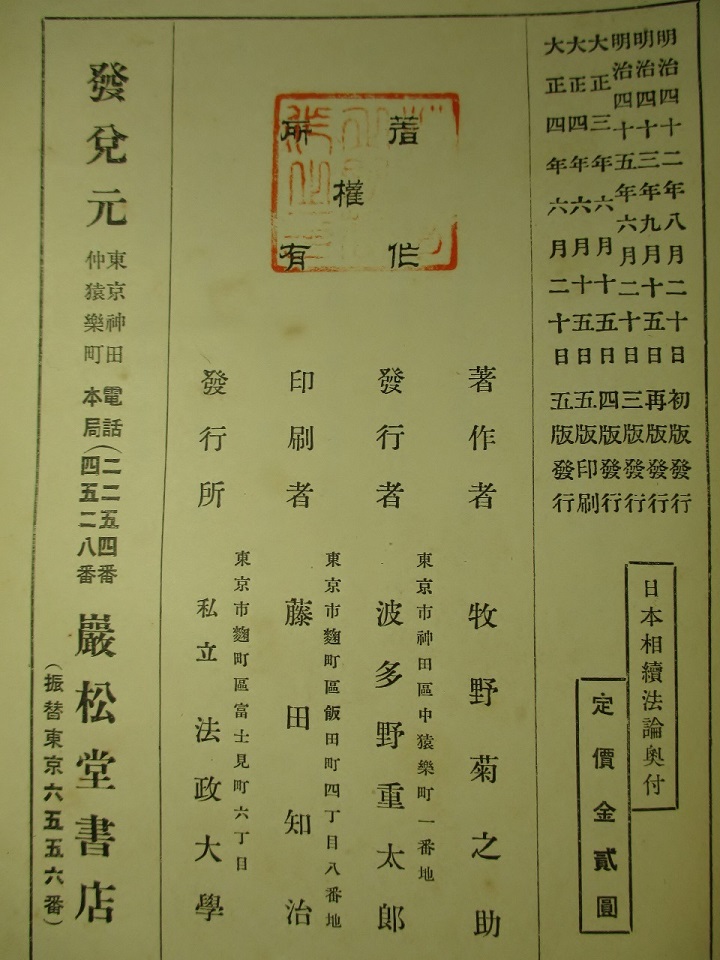 明治四十二年八月二十日初版發行
明治四十三年九月二十五日再版發行
明治四十五年六月二十日三版發行
大正三年六月十五日四版發行
大正四年六月十五日五版印刷
大正四年六月二十日五版發行
日本相續法論奧付
定價金貳圓
著作
權
所有
著作者
牧野菊之助
發行者
東京市神田區中猿樂町一番地
波多野重太郎
印刷者
東京市麴町區飯田町四丁目八番地
藤田知治
發行所
東京市麴町區富士見町六丁目
私立法政大學
發兌元
東京神田
仲猿樂町
電話(二二五四番
本局 四五二八番
巖松堂書店
(振替東京六五五六番)